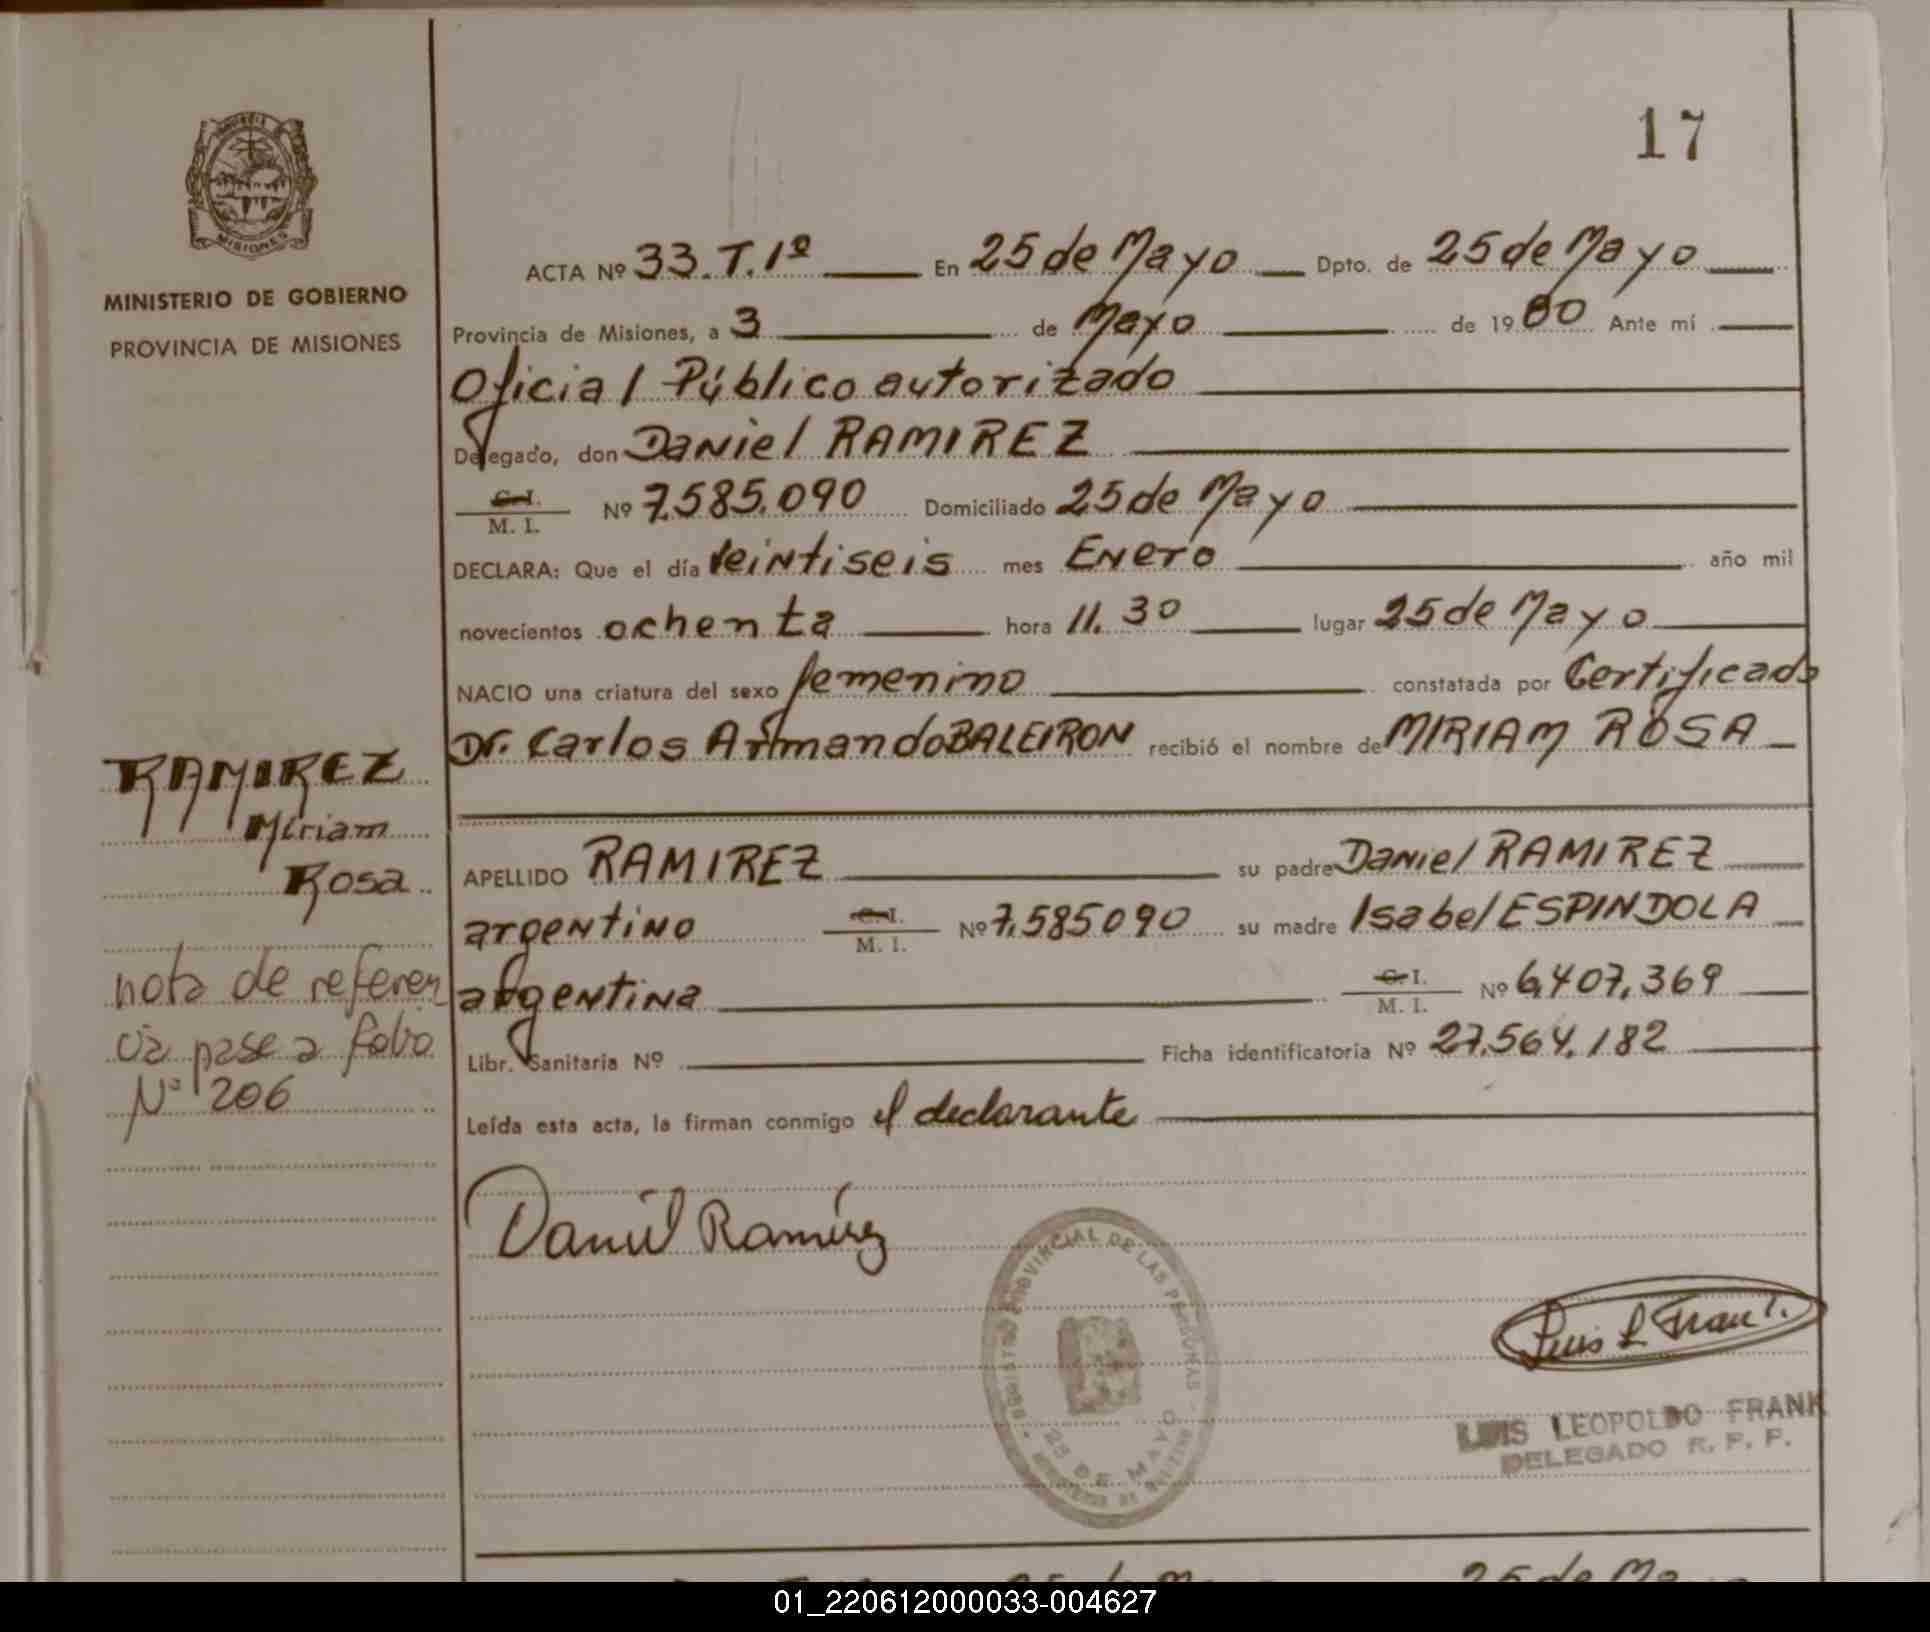 17
MINISTERIO DE GOBIERNO
PROVINCIA DE MISIONES
ACTA Nº 33.T.1º En 25 de Mayo Dpto. de 25 de Mayo
Provincia de Misiones, a 3 de Mayo de 1980 Ante mí
Oficial Público autorizado
Delegado, don Daniel RAMIREZ
C. I.
M. I. Nº 7.585.090 Domiciliado 25 de Mayo
DECLARA: Que el día veintiseis mes Enero año mil
novecientos ochenta hora 11.30 lugar 25 de Mayo
NACIO una criatura del sexo femenino constatada por Certificado
Dr. Carlos Armando BALEIRON recibió el nombre de MIRIAM ROSA
RAMIREZ
Miriam
Rosa
nota de referen
cia pase a folio
Nº 206
APELLIDO RAMIREZ su padre Daniel RAMIREZ
argentino C. I.
M. I. Nº 7.585090 su madre Isabel ESPINDOLA
argentina C. I.
M. I. Nº 6,407,369
Libr. Sanitaria Nº Ficha identificatoria Nº 27.564.182
Leída esta acta, la firman conmigo el declarante
Daniel Ramírez
REGISTRO PROVINCIAL DE LAS PERSONAS
25 DE MAYO
Luis L Frank
LUIS LEOPOLDO FRANK
DELEGADO R. P. P.
01_220612000033-004627